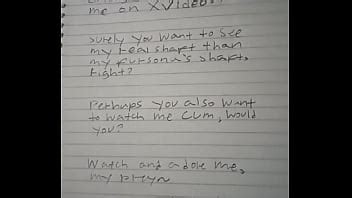 me on XVideos.
Surely you want to see
my real shaft than
my fursona's shaft,
right?
Perhaps you also want
to watch me cum, would
you?
Watch and adore me,
my